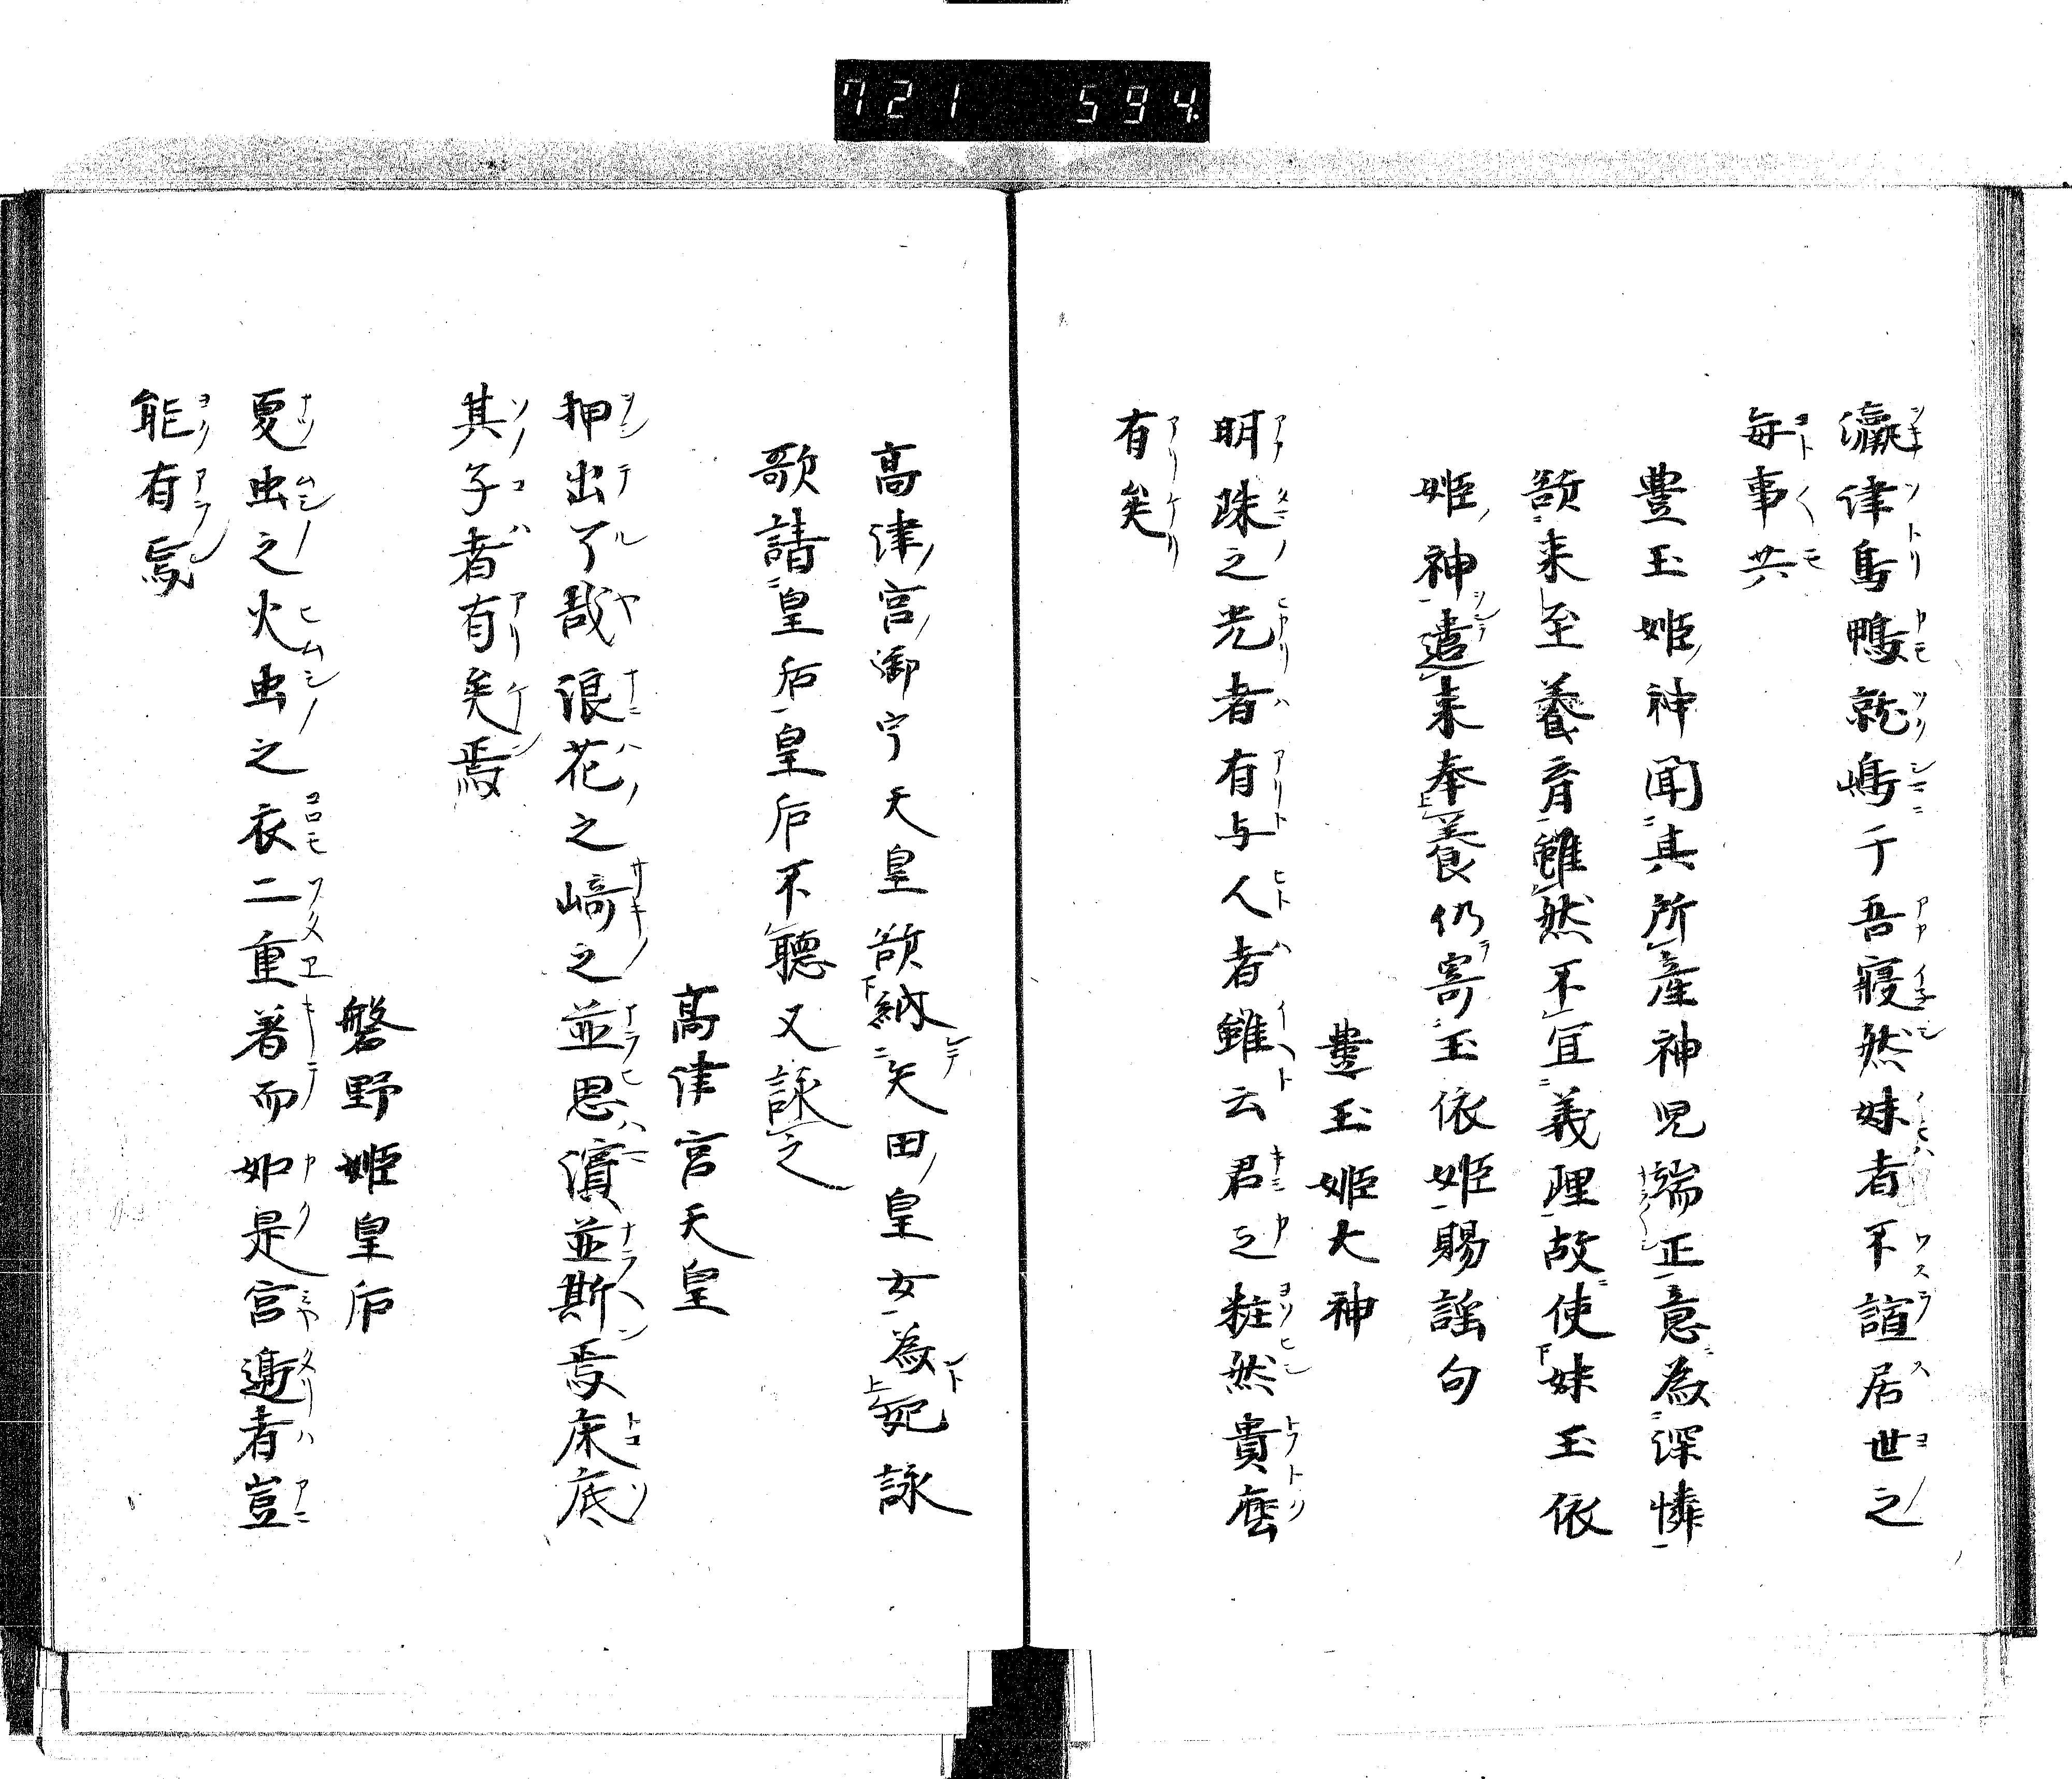 721 594
瀛津鳥鴨就嶋于吾寝然妹者不諠居世之
毎事共
豊玉姫神聞其所産神児端正意為深憐
欲来至養育雖然不宜義理故使妹玉依
姫神遣来奉養仍寄玉依姫賜謡句
豊玉姫大神
明珠之光者有与人者雖云君之粧然貴麼
有矣
高津宮御宁天皇欲納矢田皇女為妃詠
歌請皇后皇后不聴又詠之
高津宮天皇
押出了哉浪花之﨑之並思濱並斯焉床底
其子者有矣焉
磐野姫皇后
夏虫之火虫之衣二重着而如是宮者豈
能有焉